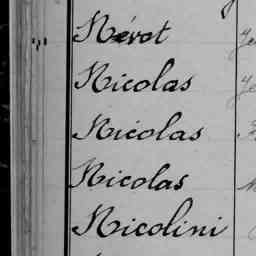 Névot
Nicolas
Nicolas
Nicolas
Nicolini